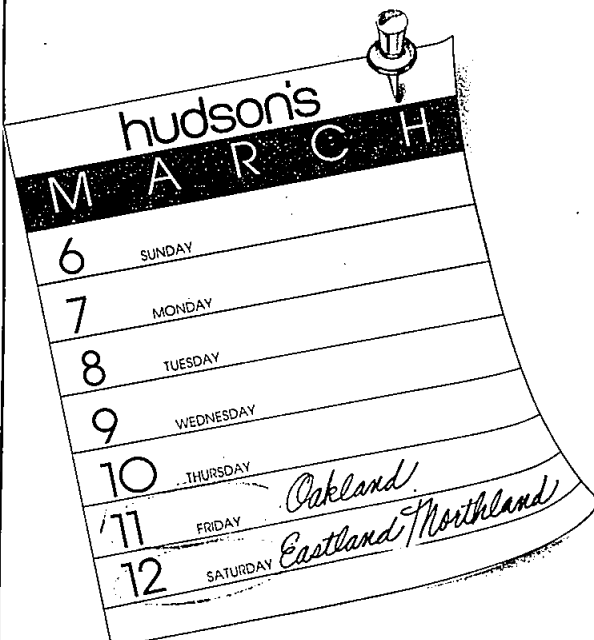 hudson's
MARCH
6 SUNDAY
7 MONDAY
8 TUESDAY
9 WEDNESDAY
10 THURSDAY
11 FRIDAY Oakland
12 SATURDAY Eastland Northland